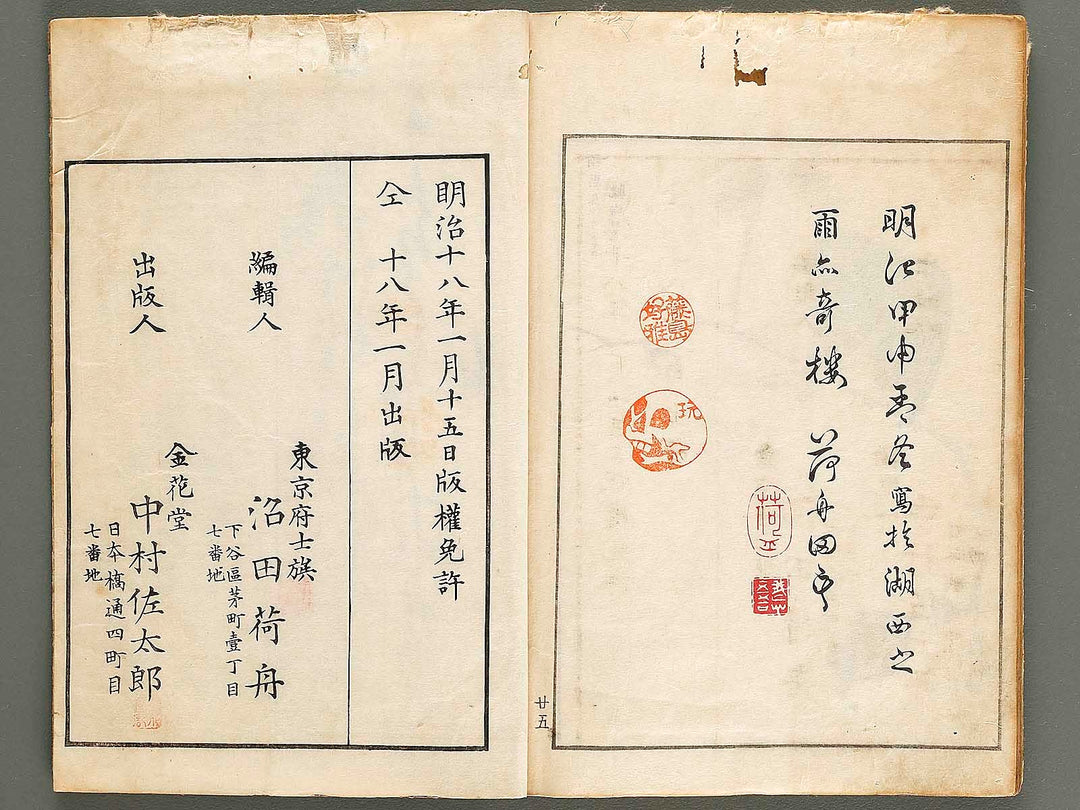 明治甲申孟冬寫於湖西之
雨亦奇楼 荷舟田守
藤島
好雅
玩
荷平
廿五
明治十八年一月十五日版權免許
仝 十八年一月出版
編輯人
東京府士族
下谷區茅町壹丁目
七番地
沼田荷舟
出版人
金花堂
日本橋通四町目
七番地
中村佐太郎